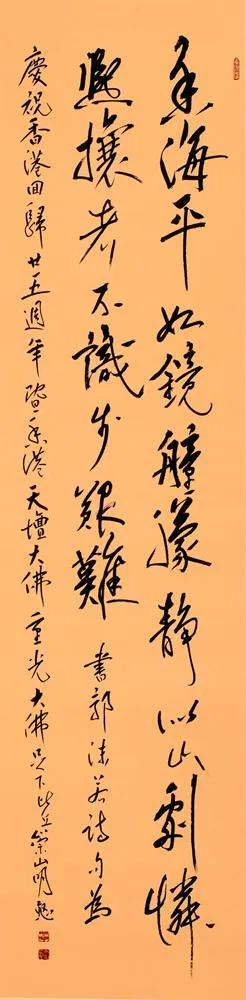 香海平如鏡艟艨靜似山劇憐
熙攘者不識步艱難 書郭沫若詩句為
慶祝香港回歸廿五週年暨香港天壇大佛重光 大佛足下比丘